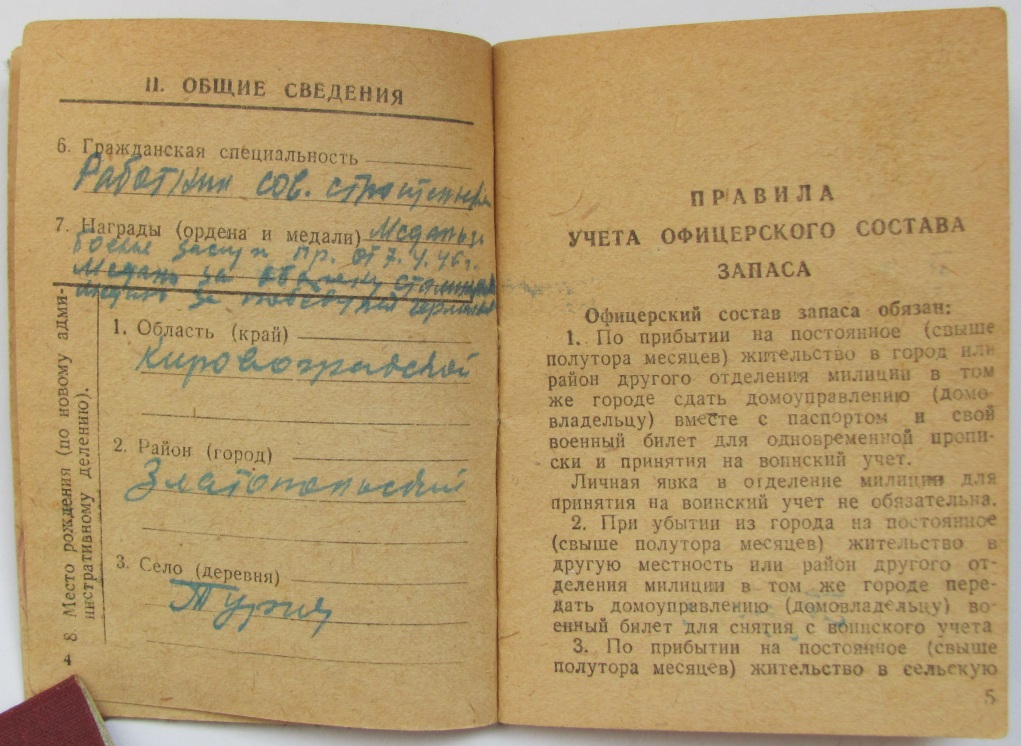 II. ОБЩИЕ СВЕДЕНИЯ
6. Гражданская специальность
Работник сов. строительн
7. Награды (ордена и медали) Медаль за
боевые заслуги пр. от 7.V.46 г.
Медаль за оборону сталинград
Медаль за победу над германией
8. Место рождения (по новому адми-
нистративному делению).
1. Область (край)
Кировоградской
2. Район (город)
Златопольский
3. Село (деревня)
Турия
4
ПРАВИЛА
УЧЕТА ОФИЦЕРСКОГО СОСТАВА
ЗАПАСА
Офицерский состав запаса обязан:
1. По прибытии на постоянное (свыше
полутора месяцев) жительство в город или
район другого отделения милиции в том
же городе сдать домоуправлению (домо-
владельцу) вместе с паспортом и свой
военный билет для одновременной пропи-
ски и принятия на воинский учет.
Личная явка в отделение милиции для
принятия на воинский учет не обязательна.
2. При убытии из города на постоянное
(свыше полутора месяцев) жительство в
другую местность или район другого от-
деления милиции в том же городе пере-
дать домоуправлению (домовладельцу) во-
енный билет для снятия с воинского учета
3. По прибытии на постоянное (свыше
полутора месяцев) жительство в сельскую
5